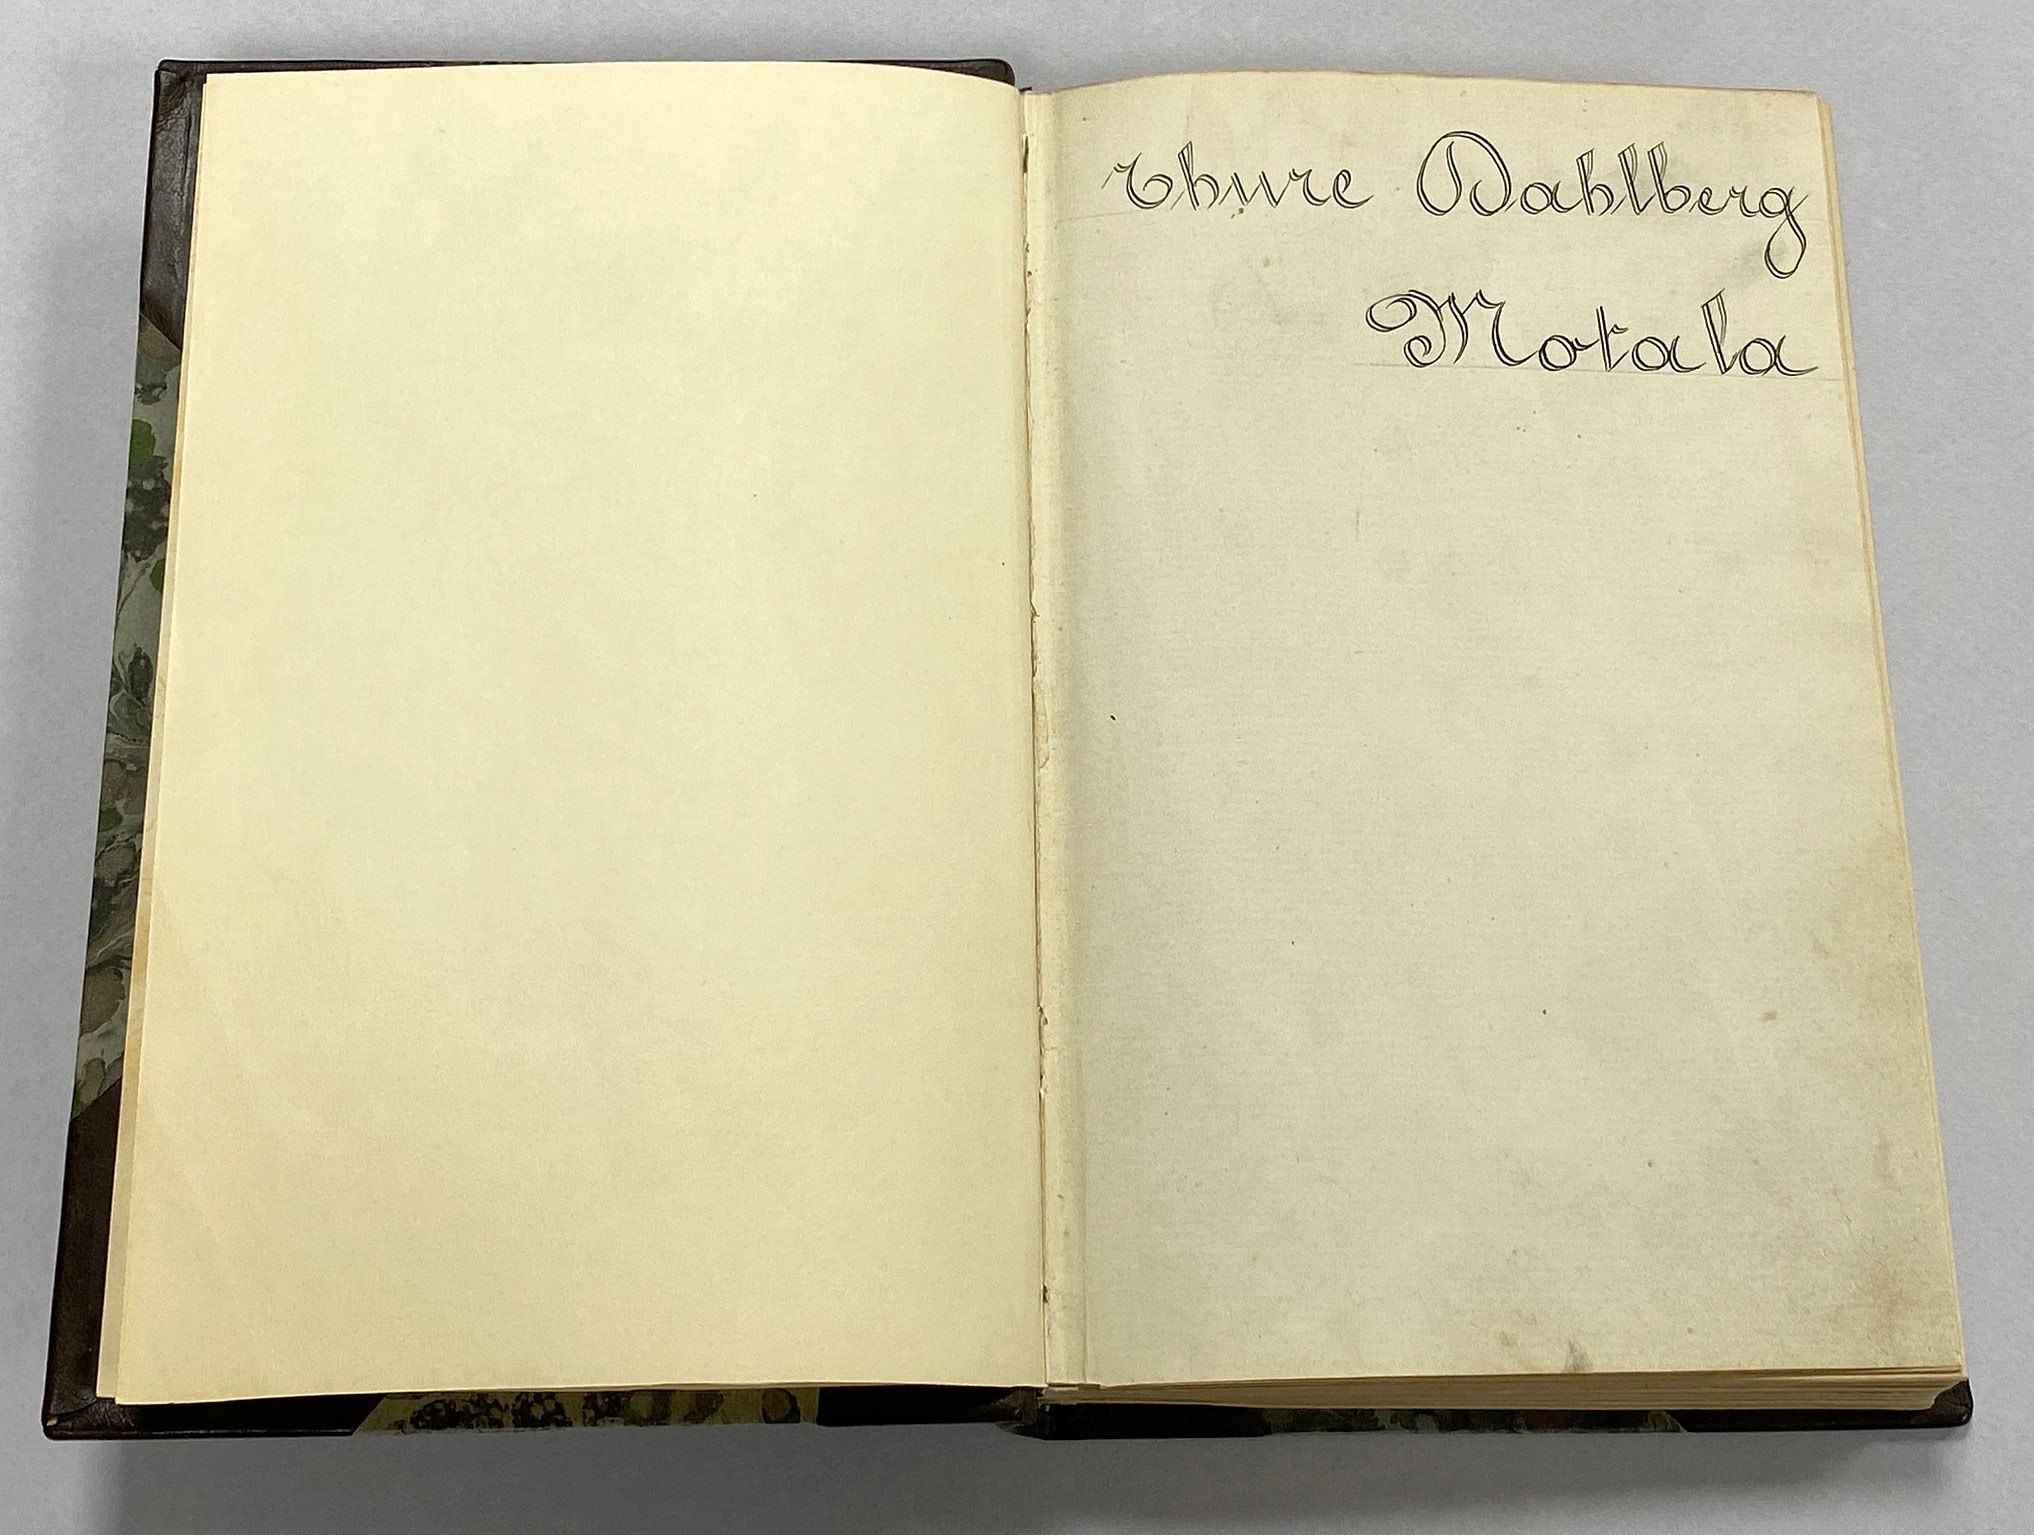 Thure Dahlberg
Motala